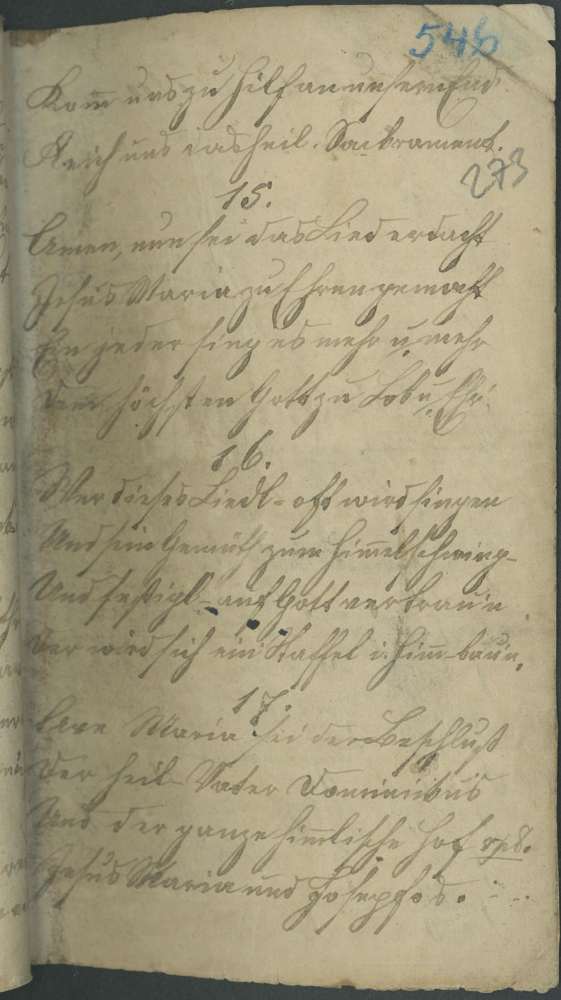 546
Kom̅ uns zu Hilf an unserm End
Reich uns das heil. Sackrament.
273
15.
Amen, nun sei das Lied erdacht
Jesus Maria zu Ehren gemacht
Ein jeder sing es mehr u. mehr
Dem höchsten Gott zu Lob u. Ehr.
16.
Wer dieses Liedl oft wird singen
Und sein Gemüth zum Him̅el schwing
Und festigl auf Gott vertrau'n
Der wird sich ein Staffel i. Him̅ bau'n.
17.
Ave Maria sei der Beschluß
Der heil Vater Dominikus
Und der ganze him̅lische Hof
Jesus Maria und Josef